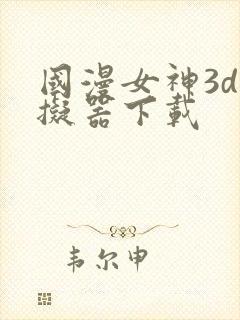 國漫女神3d
擬器下載
韦尔申